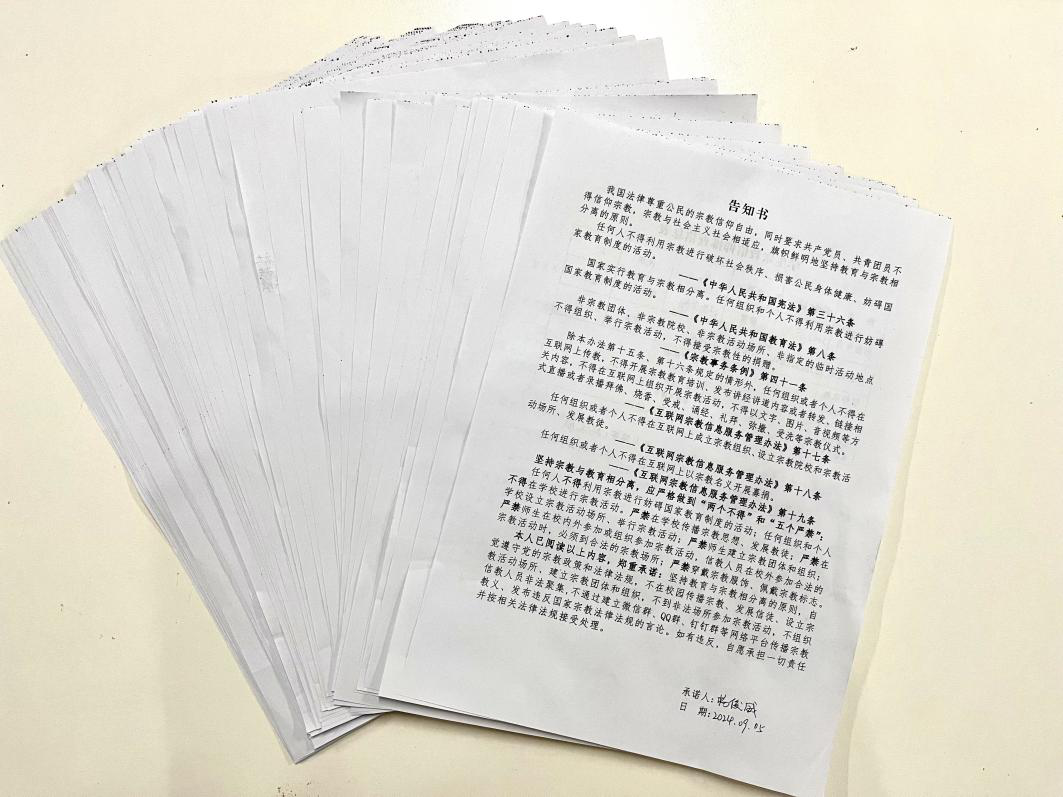 告知书
我国法律尊重公民的宗教信仰自由，同时要求共产党员、共青团员不
得信仰宗教，宗教与社会主义社会相适应，旗帜鲜明地坚持教育与宗教相
分离的原则。
任何人不得利用宗教进行破坏社会秩序、损害公民身体健康、妨碍国
家教育制度的活动。
——《中华人民共和国宪法》第三十六条
国家实行教育与宗教相分离。任何组织和个人不得利用宗教进行妨碍
国家教育制度的活动。
——《中华人民共和国教育法》第八条
非宗教团体，非宗教院校、非宗教活动场所、非指定的临时活动地点
不得组织、举行宗教活动，不得接受宗教性的捐赠。
——《宗教事务条例》第四十一条
除本办法第十五条、第十六条规定的情形外，任何组织或者个人不得在
互联网上传教，不得开展宗教教育培训、发布讲经讲道内容或者转发、链接相
关内容，不得在互联网上组织开展宗教活动，不得以文字、图片、音视频等方
式直播或者录播拜佛、烧香、受戒、诵经、礼拜、弥撒、受洗等宗教仪式。
——《互联网宗教信息服务管理办法》第十七条
任何组织或者个人不得在互联网上成立宗教组织、设立宗教院校和宗教活
动场所、发展教徒。
——《互联网宗教信息服务管理办法》第十八条
任何组织或者个人不得在互联网上以宗教名义开展募捐。
——《互联网宗教信息服务管理办法》第十九条
坚持宗教与教育相分离，应严格做到“两个不得”和“五个严禁”：
任何人不得利用宗教进行妨碍国家教育制度的活动；任何组织和个人
不得在学校进行宗教活动。严禁在学校传播宗教思想、发展教徒；严禁在
学校设立宗教活动场所、举行宗教活动；严禁师生建立宗教团体和组织；
严禁师生在校内外参加或组织参加宗教活动，信教人员在校外参加合法的
宗教活动时，必须到合法的宗教场所；严禁穿戴宗教服饰、佩戴宗教标志。
本人已阅读以上内容，郑重承诺：坚持教育与宗教相分离的原则，自
觉遵守党的宗教政策和法律法规，不在校园传播宗教、发展信徒、设立宗
教活动场所、建立宗教团体和组织，不到非法场所参加宗教活动，不组织
信教人员非法聚集，不通过建立微信群、QQ群、钉钉群等网络平台传播宗教
教义、发布违反国家宗教法律法规的言论。如有违反，自愿承担一切责任
并按相关法律法规接受处理。
承诺人：
日 期：2024.09.05